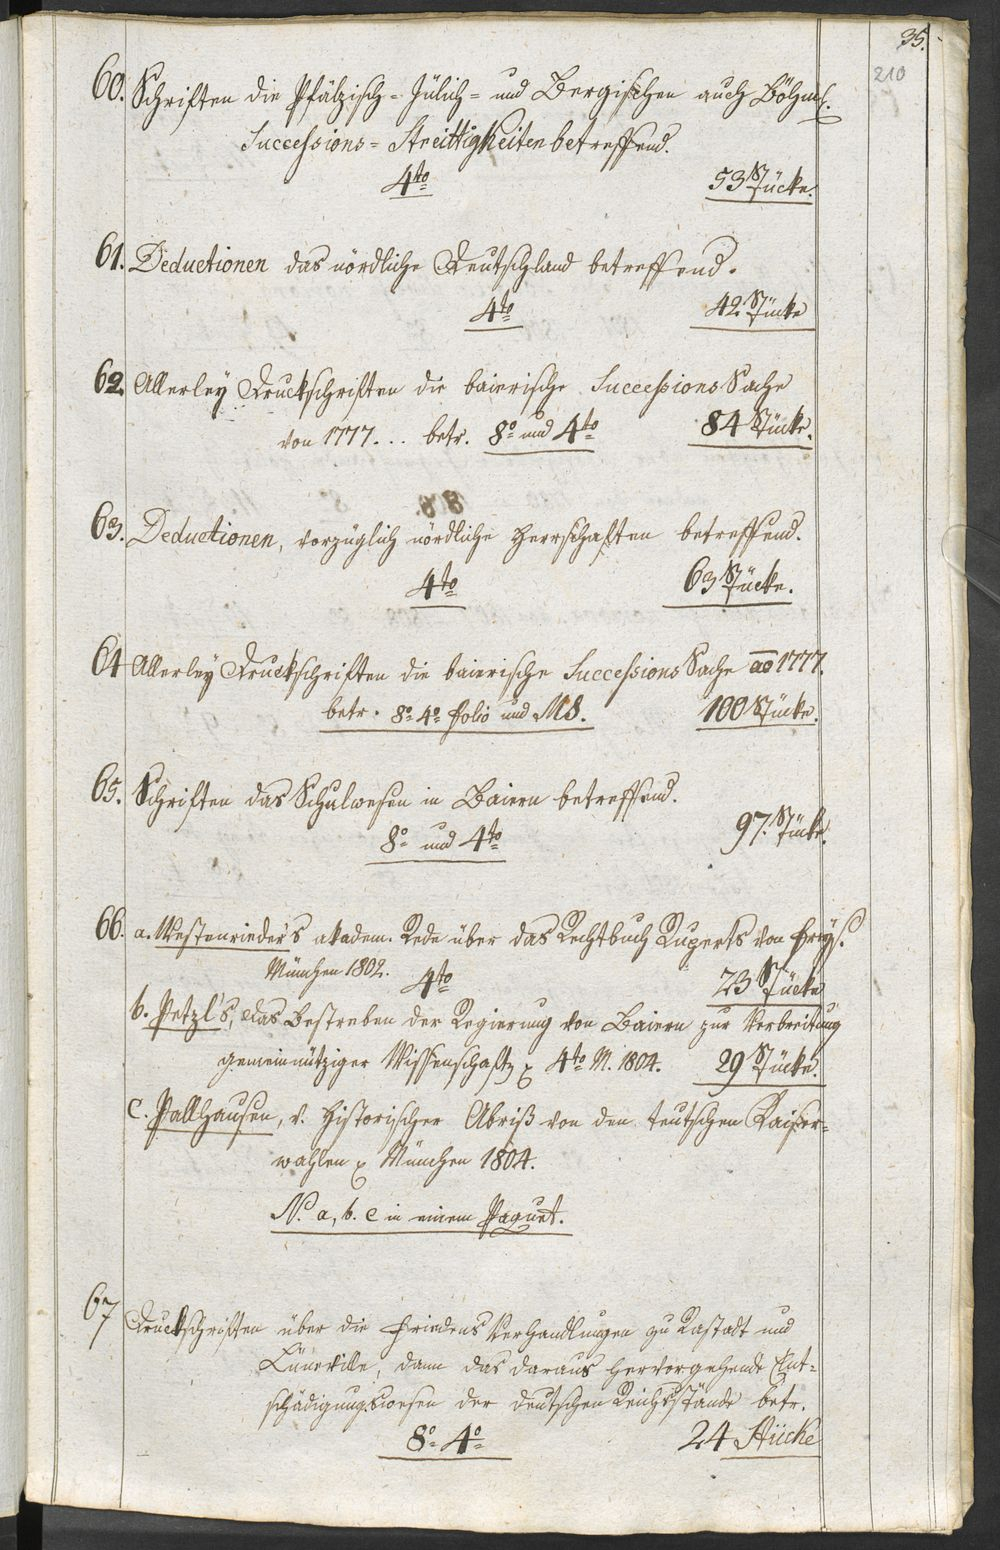 35.
210
60. Schriften die Pfälzisch- Jülich- und Bergischen auch Böhm.
Successions- Streittigkeiten betreffend.
4to 53 Stücke.
61. Deductionen das nördliche Deutschland betreffend.
4to 42 Stücke
62 Allerley Druckschriften die baierische Successions Sache
von 1777... betr. 8o und 4to 84 Stücke.
63. Deductionen, vorzüglich nördliche Herrschaften betreffend.
4to 63 Stücke.
64 Allerley Druckschriften die baierische Successions Sache ao 1777.
betr. 8o 4o folio und MS. 100 Stücke.
65. Schriften das Schulwesen in Baiern betreffend.
8o und 4to 97. Stücke.
66. a. Westenrieder's akadem. Rede über das Rechtbuch Ruperts von Freys.
München 1802. 4to 23 Stücke
b. Petzl's, das Bestreben der Regierung von Baiern zur Verbreitung
gemeinnütziger Wissenschaft 4to M. 1804. 29 Stücke.
c. Pallhausen, v. historischer Abriß von den teutschen Kaiser-
wahlen München 1804.
N. a, b. c in einem Paquet.
67 Druckschriften über die Friedens Verhandlungen zu Rastadt und
Lüneville, dann das daraus hervorgehende Ent-
schädigungswesen der deutschen Reichsstände betr.
8o 4o 24 Stücke